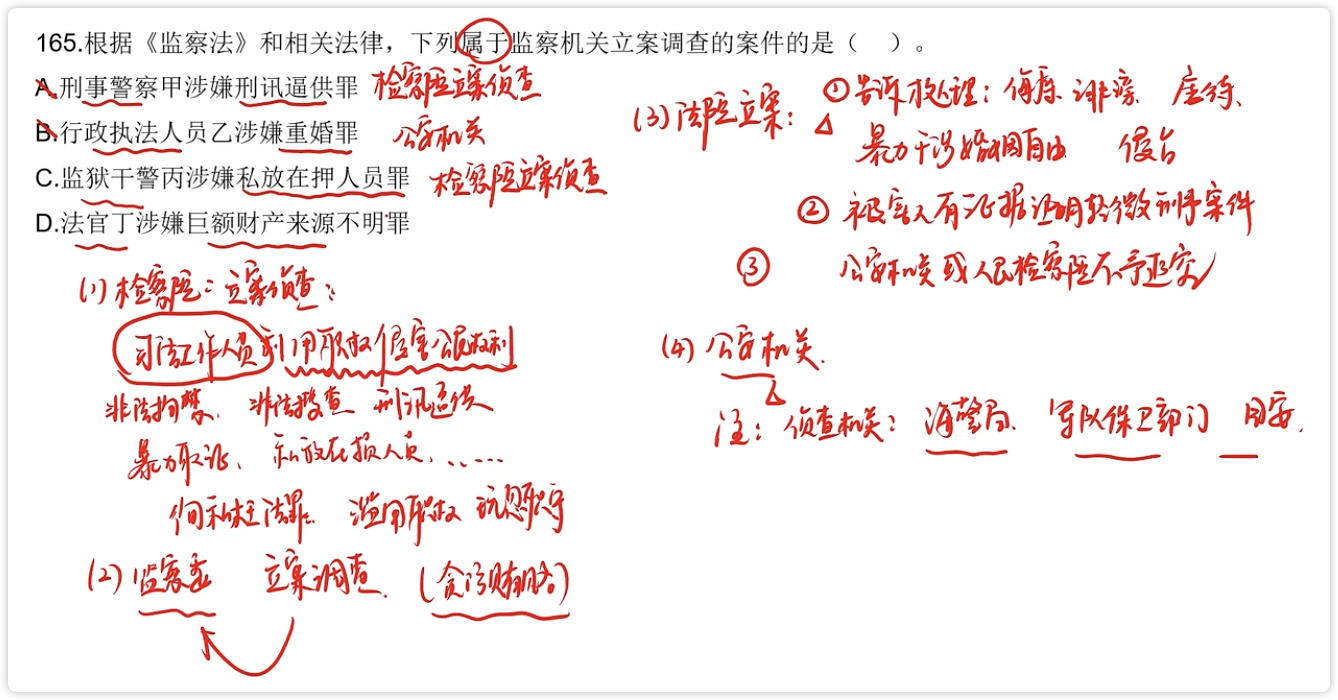 165.根据《监察法》和相关法律，下列属于监察机关立案调查的案件的是（　）。
A.刑事警察甲涉嫌刑讯逼供罪 检察院立案侦查
B.行政执法人员乙涉嫌重婚罪 公安机关
C.监狱干警丙涉嫌私放在押人员罪 检察院立案侦查
D.法官丁涉嫌巨额财产来源不明罪
(1)检察院：立案侦查：
司法工作人员利用职权侵害公民权利
非法拘禁、非法搜查 刑讯逼供
暴力取证、私放在损人员、……
徇私枉法罪 滥用职权 玩忽职守
(2)监察委 立案调查（贪污贿赂）
(3)法院立案：①告诉才处理：侮辱 诽谤 虐待、
暴力干涉婚姻自由 侵占
②被害人有证据证明轻微刑事案件
③公安机关或人民检察院不予追究
(4)公安机关
注：侦查机关：海警局、军队保卫部门 国安